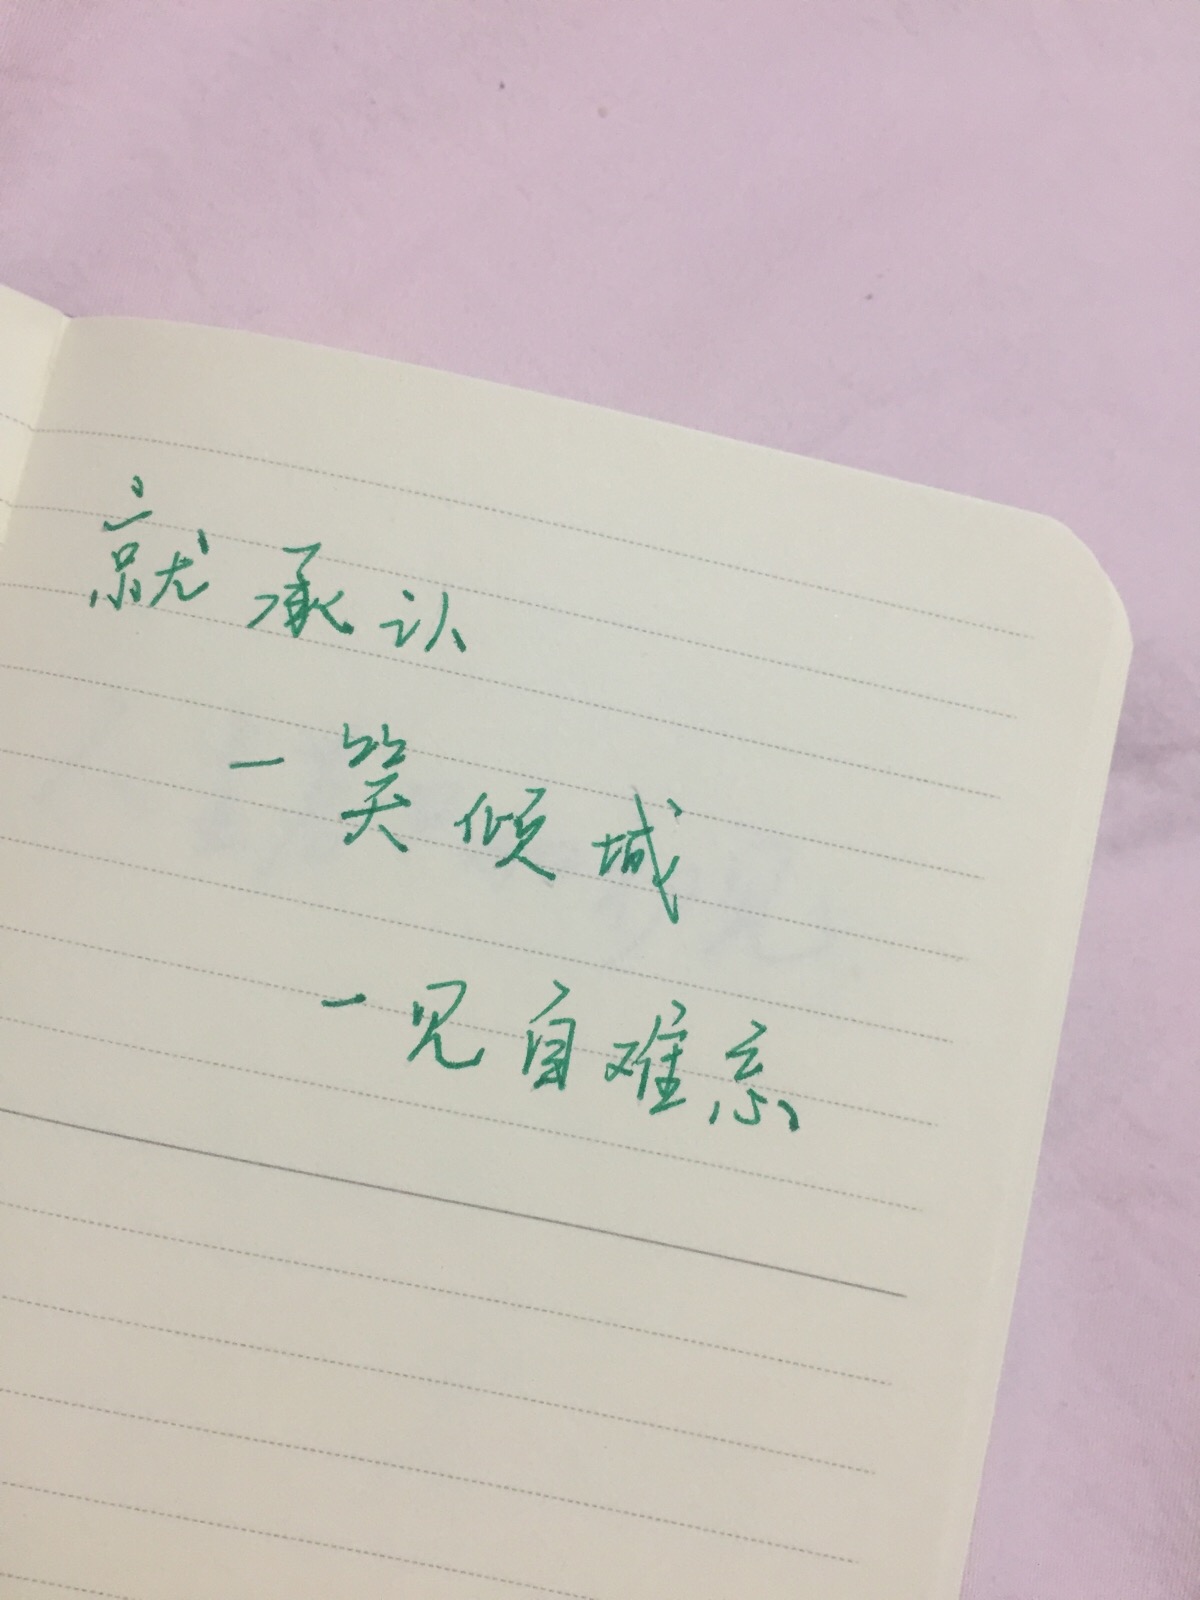 就承认
一笑倾城
一见自难忘